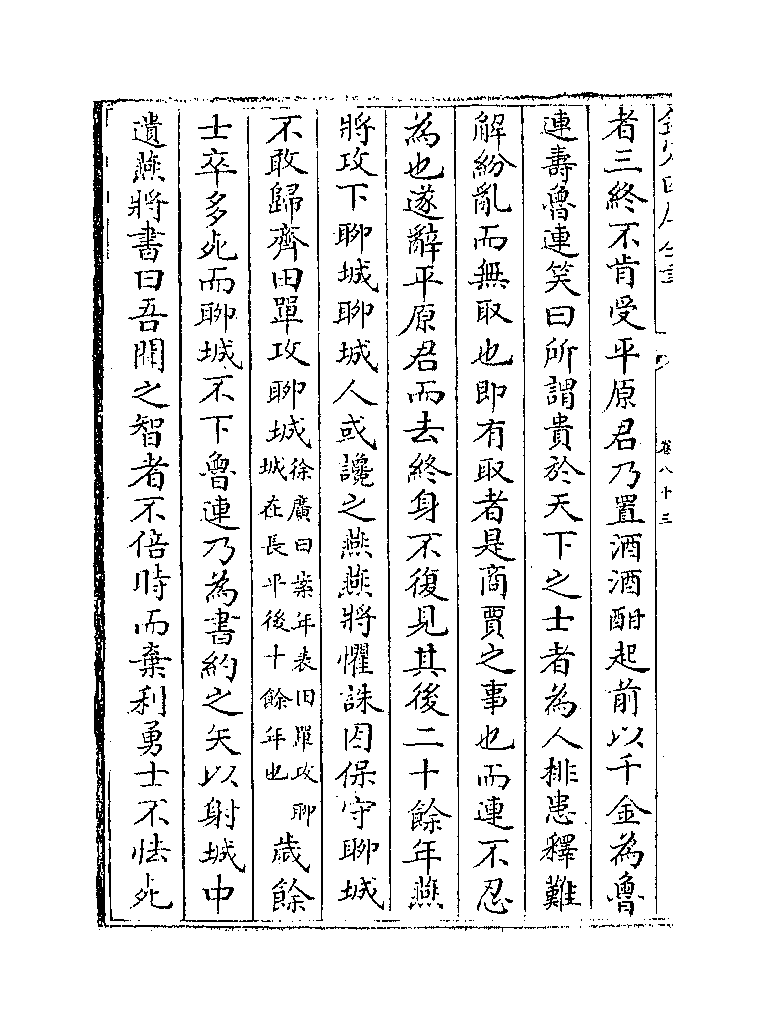 卷八十三
者三終不肯受平原君乃置酒酒酣起前以千金為魯
連壽魯連笑曰所謂貴於天下之士者為人排患釋難
解紛亂而無取也即有取者是商賈之事也而連不忍
為也遂辭平原君而去終身不復見其後二十餘年燕
將攻下聊城聊城人或讒之燕燕將懼誅因保守聊城
不敢歸齊田單攻聊城徐廣曰案年表田單攻聊城在長平後十餘年也歲餘
士卒多死而聊城不下魯連乃為書約之矢以射城中
遺燕將書曰吾聞之智者不倍時而棄利勇士不怯死